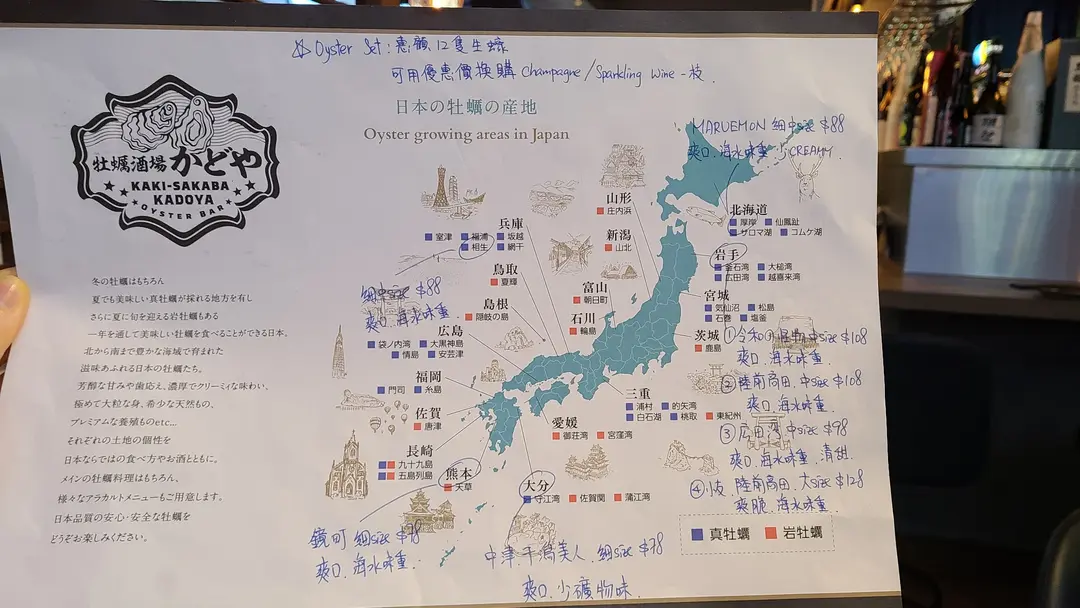 ☆ Oyster Set : 惠顧 12隻生蠔
可用優惠價換購 Champagne/Sparkling Wine 一枝.
日本の牡蠣の産地
Oyster growing areas in Japan
牡蠣酒場 かどや
KAKI-SAKABA
KADOYA
OYSTER BAR
冬の牡蠣はもちろん
夏でも美味しい真牡蠣が採れる地方を有し
さらに夏に旬を迎える岩牡蠣もある
一年を通して美味しい牡蠣を食べることができる日本。
北から南まで豊かな海域で育まれた
滋味あふれる日本の牡蠣たち。
芳醇な甘みや歯応え、濃厚でクリーミィな味わい、
極めて大粒な身、希少な天然もの、
プレミアムな養殖ものetc...
それぞれの土地の個性を
日本ならではの食べ方やお酒とともに。
メインの牡蠣料理はもちろん、
様々なアラカルトメニューもご用意します。
日本品質の安心・安全な牡蠣を
どうぞお楽しみください。
MARUEMON 細中size $88
爽口.海水味重.少CREAMY.
北海道
厚岸 仙鳳趾
サロマ湖 コムケ湖
山形
庄内浜
新潟
山北
富山
朝日町
石川
輪島
兵庫
室津 福浦 坂越
相生 網干
鳥取
夏輝
島根
隠岐の島
細中size $88
爽口.海水味重.
広島
袋ノ内湾 大黒神島
情島 安芸津
福岡
門司 糸島
佐賀
唐津
長崎
九十九島
五島列島
熊本
天草
大分
守江湾 佐賀関 蒲江湾
愛媛
御荘湾 宮窪湾
三重
浦村 的矢湾
白石湖 桃取 東紀州
岩手
釜石湾 大槌湾
広田湾 越喜来湾
宮城
気仙沼 松島
石巻 塩釜
茨城
鹿島
① 令和の怪物 中size $108
爽口.海水味重
② 陸前高田.中size $108
爽口.海水味重.
③ 広田湾 中size $98
爽口.海水味重.清甜.
④ 小友.陸前高田.大size $128
爽脆.海水味重.
真牡蠣 岩牡蠣
鏡町 細size $78
爽口.海水味重.
中津.干潟美人.細size $78
爽口.少礦物味.